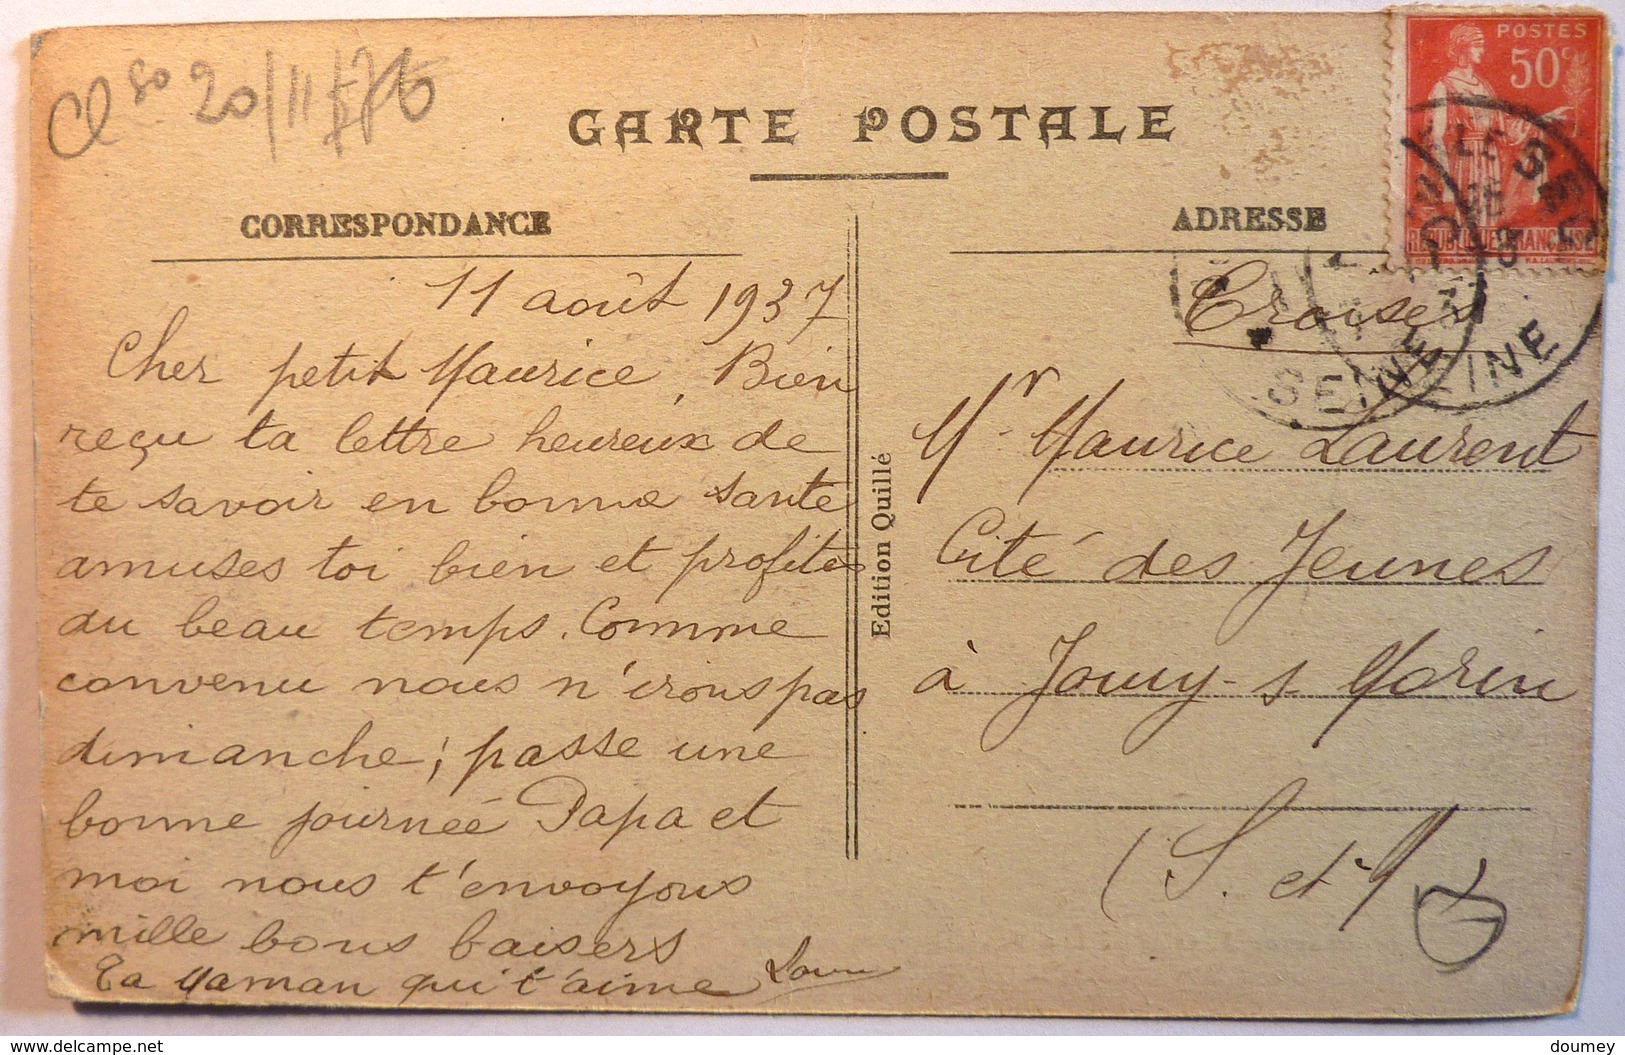 CARTE POSTALE
CORRESPONDANCE
11 août 1937
Cher petit Maurice, Bien
reçu ta lettre heureux de
te savoir en bonne sante
amuses toi bien et profites
du beau temps. Comme
convenu nous n'irons pas
dimanche; passe une
bonne journeé Papa et
moi nous t'envoyons
mille bons baisers
Ta Maman qui t'aime
Edition Quillé
ADRESSE
Mr Maurice Laurent
Cité des Jeunes
à Jouy-s-Morin
(S. et M
POSTES
50c
REPUBLIQUE FRANÇAISE
SEINE
SEINE
www.delcampe.net
doumey